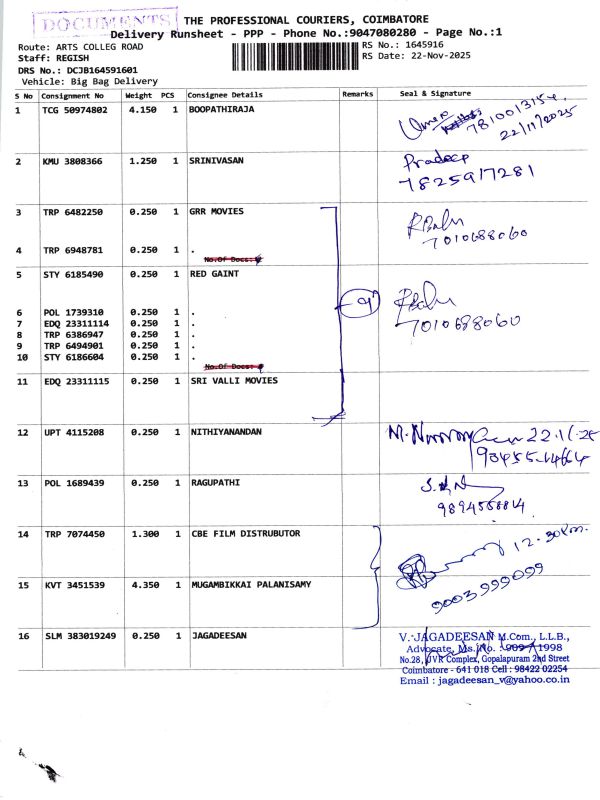 DOCUMENTS
THE PROFESSIONAL COURIERS, COIMBATORE
Delivery Runsheet - PPP - Phone No.:9047080280 - Page No.:1
Route: ARTS COLLEG ROAD
RS No.: 1645916
Staff: REGISH
RS Date: 22-Nov-2025
DRS No.: DCJB164591601
Vehicle: Big Bag Delivery
S No Consignment No Weight PCS Consignee Details Remarks Seal & Signature
1 TCG 50974802 4.150 1 BOOPATHIRAJA
22/11/2025
2 KMU 3808366 1.250 1 SRINIVASAN Pradeep
7825917281
3 TRP 6482250 0.250 1 GRR MOVIES
7010688060
4 TRP 6948781 0.250 1 .
No.Of Docs:
5 STY 6185490 0.250 1 RED GAINT
6 POL 1739310 0.250 1 .
7 EDQ 23311114 0.250 1 . 7010688060
8 TRP 6386947 0.250 1 .
9 TRP 6494901 0.250 1 .
10 STY 6186604 0.250 1 .
No.Of Docs:
11 EDQ 23311115 0.250 1 SRI VALLI MOVIES
12 UPT 4115208 0.250 1 NITHIYANANDAN
13 POL 1689439 0.250 1 RAGUPATHI
14 TRP 7074450 1.300 1 CBE FILM DISTRUBUTOR
9003999099
15 KVT 3451539 4.350 1 MUGAMBIKKAI PALANISAMY
16 SLM 383019249 0.250 1 JAGADEESAN V. JAGADEESAN M.Com., L.L.B.,
Advocate, Ms. No. : 1998
No.28, JVR Complex, Gopalapuram 2nd Street
Coimbatore - 641 018 Cell : 98422 02254
Email : jagadeesan_v@yahoo.co.in